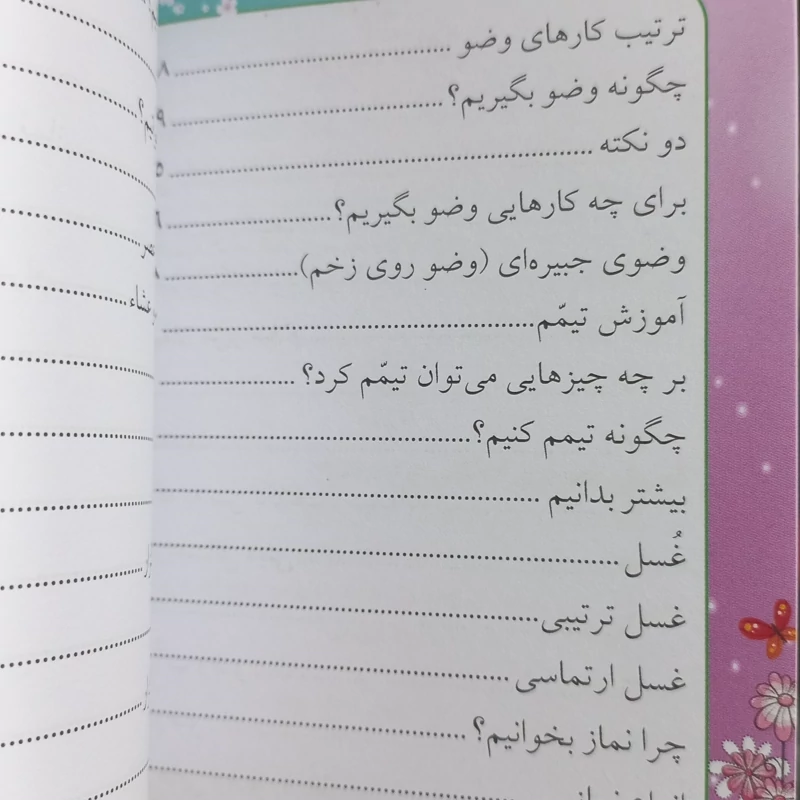 ترتیب کارهای وضو ........ ۸
چگونه وضو بگیریم؟ ........ ۹
دو نکته ........ ۵
برای چه کارهایی وضو بگیریم؟ ........ ۶
وضوی جبیره‌ای (وضو روی زخم) ........ ۸
آموزش تیمّم ........
بر چه چیزهایی می‌توان تیمّم کرد؟ ........
چگونه تیمم کنیم؟ ........
بیشتر بدانیم ........
غُسل ........
غسل ترتیبی ........
غسل ارتماسی ........
چرا نماز بخوانیم؟ ........
عشاء ........